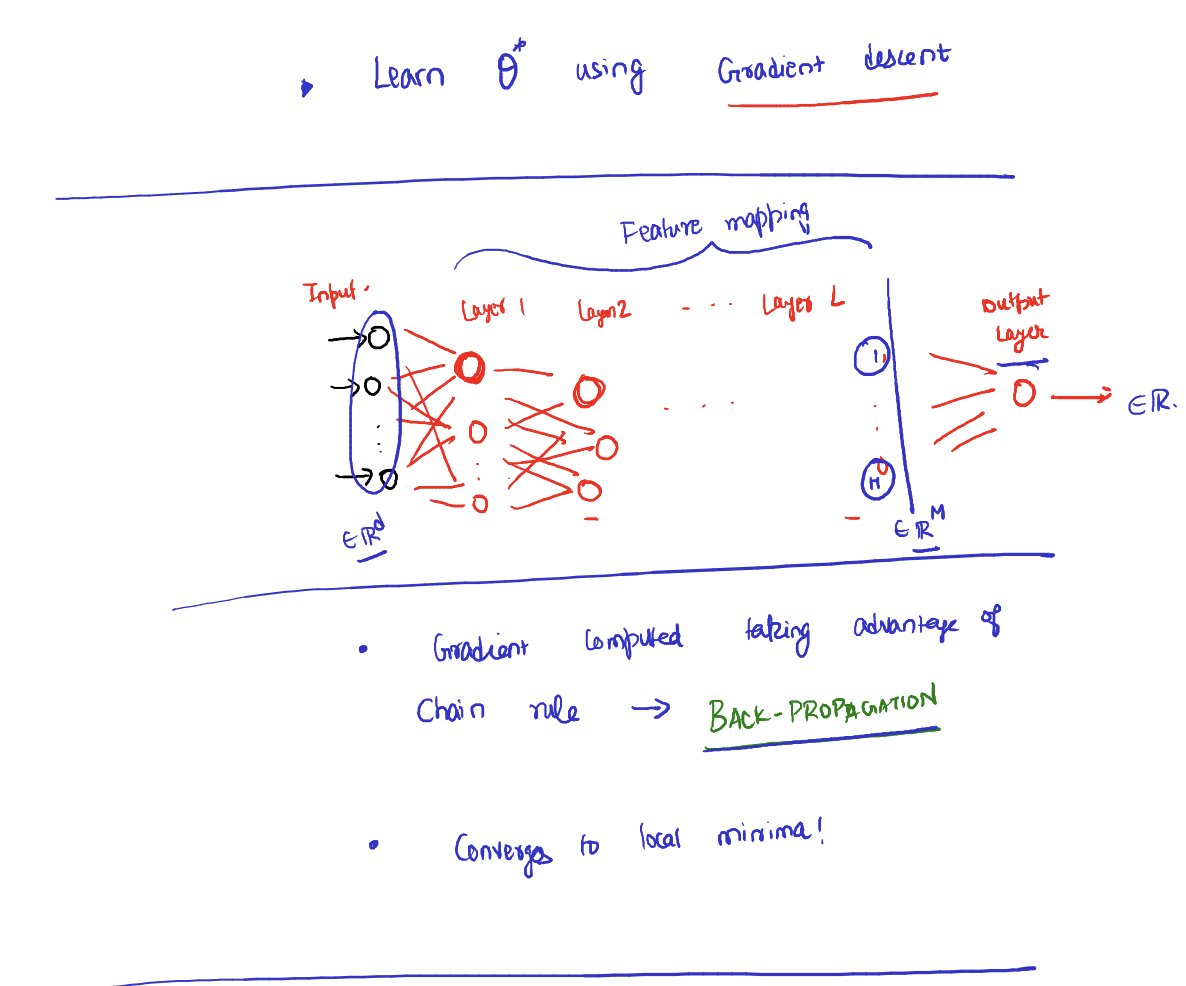 Learn θ* using Gradient descent
Feature mapping
Input.
Layer 1 Layer 2 . . . Layer L
Output
Layer
1
M
∈ ℝ.
∈ ℝᵈ
∈ ℝᴹ
• Gradient computed taking advantage of
Chain rule → BACK-PROPAGATION
• Converges to local minima!